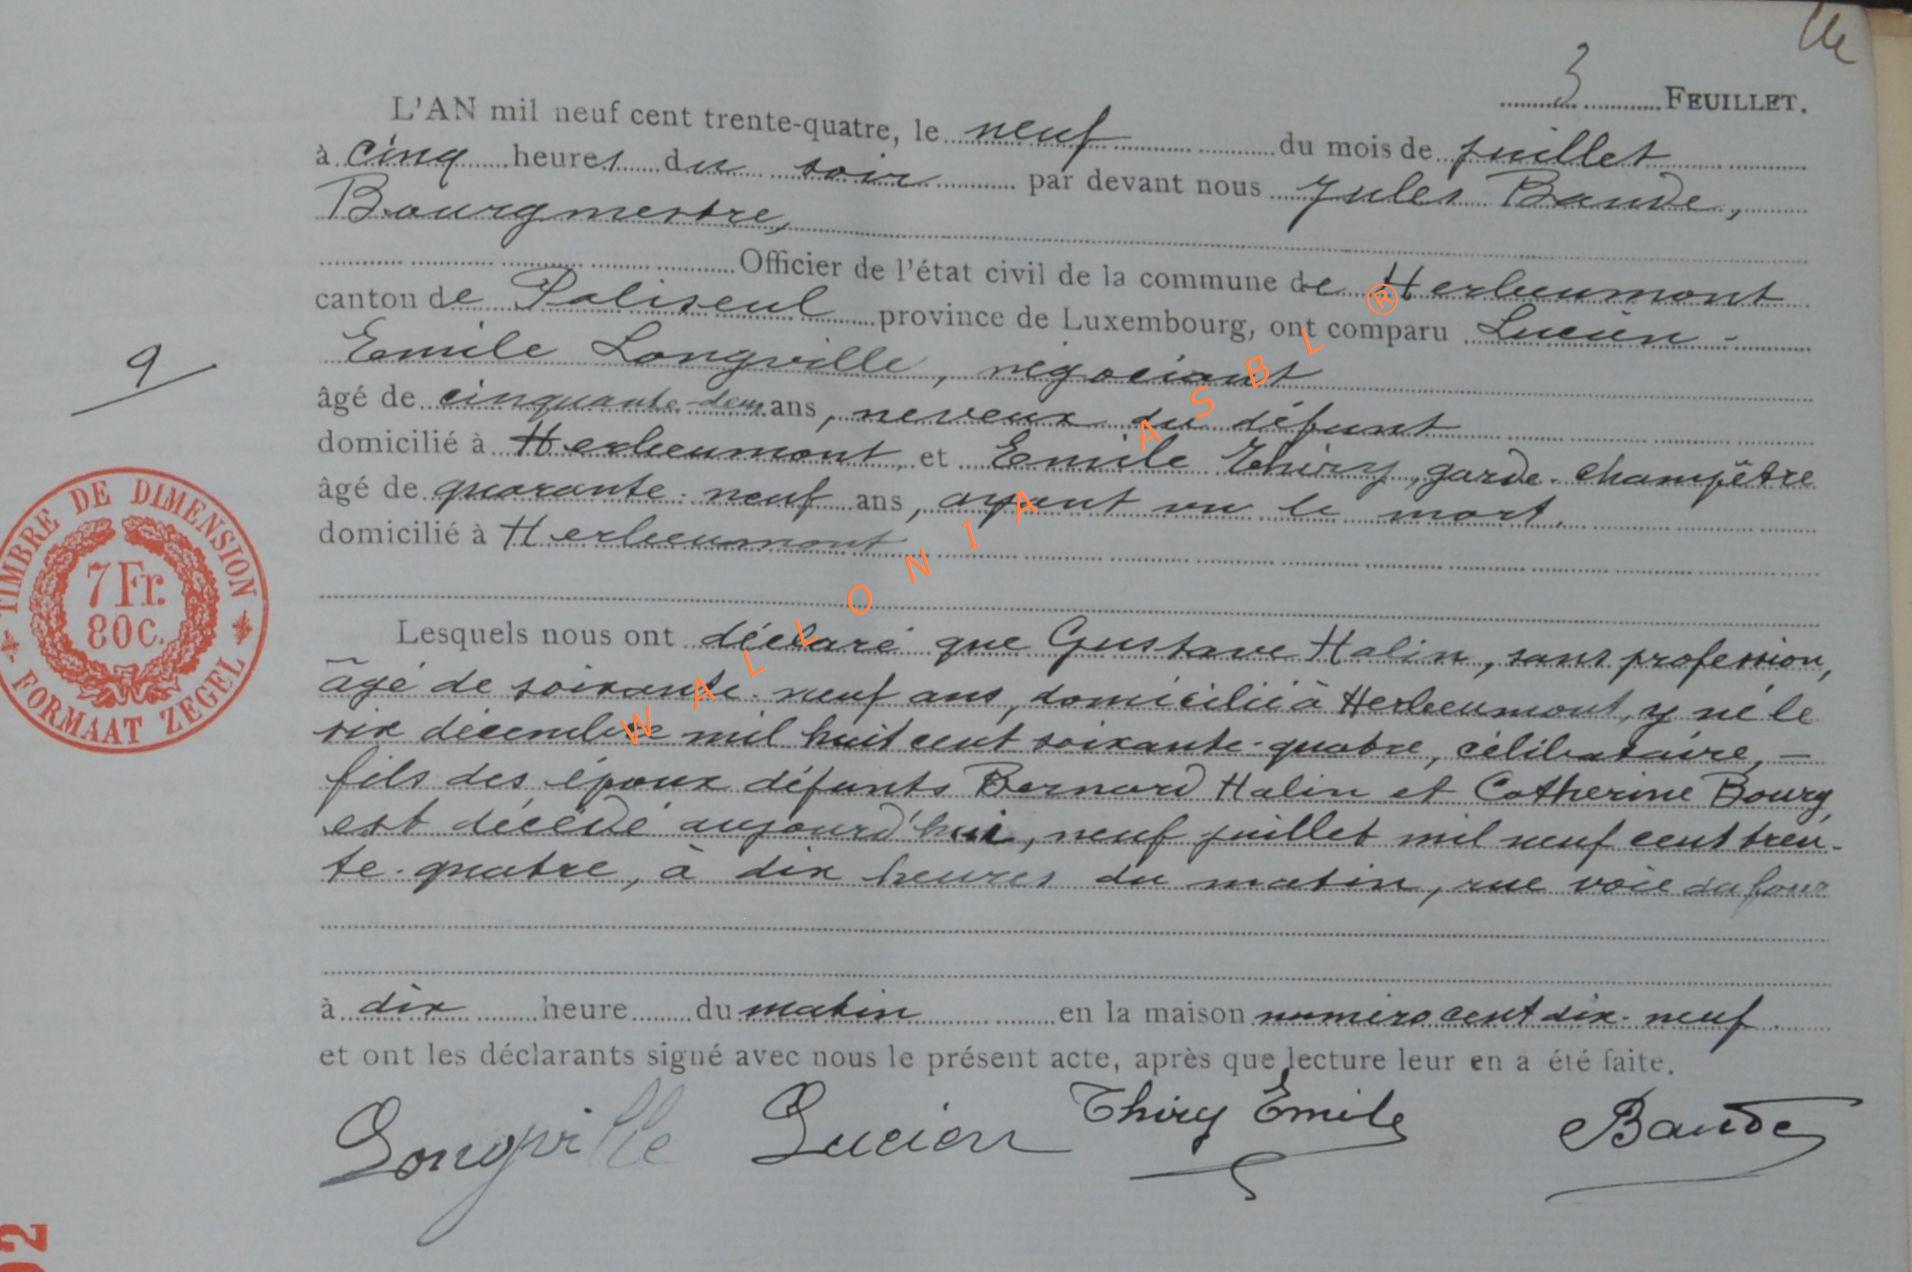 3 FEUILLET.
L'AN mil neuf cent trente-quatre, le neuf du mois de juillet
à cinq heures du soir par devant nous Jules Baude,
Bourgmestre,
Officier de l'état civil de la commune de Herbeumont
canton de Paliseul province de Luxembourg, ont comparu Lucien -
Emile Longville, négociant
âgé de cinquante-deux ans, neveux du défunt
domicilié à Herbeumont, et Emile Thiry, garde-champêtre
âgé de quarante-neuf ans, ayant vu le mort.
domicilié à Herbeumont
Lesquels nous ont déclaré que Gustave Halin, sans profession,
âgé de soixante-neuf ans, domicilié à Herbeumont, y né le
six décembre mil huit cent soixante-quatre, célibataire, -
fils des époux défunts Bernard Halin et Catherine Bourg,
est décédé aujourd'hui, neuf juillet mil neuf cent tren-
te-quatre, à dix heures du matin, rue voie du four
à dix heure du matin en la maison numéro cent dix-neuf
et ont les déclarants signé avec nous le présent acte, après que lecture leur en a été faite.
Longville Lucien Thiry Emile Baude
9
TIMBRE DE DIMENSION
7 Fr.
80 c.
FORMAAT ZEGEL
WALLONIA ASBL ®
02